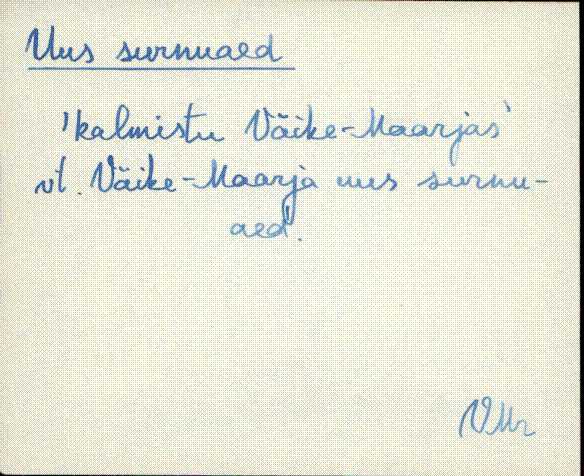 Uus surnuaed
'kalmistu Väike-Maarjas'
vt. Väike-Maarja uus surnu-
aed.
VMr